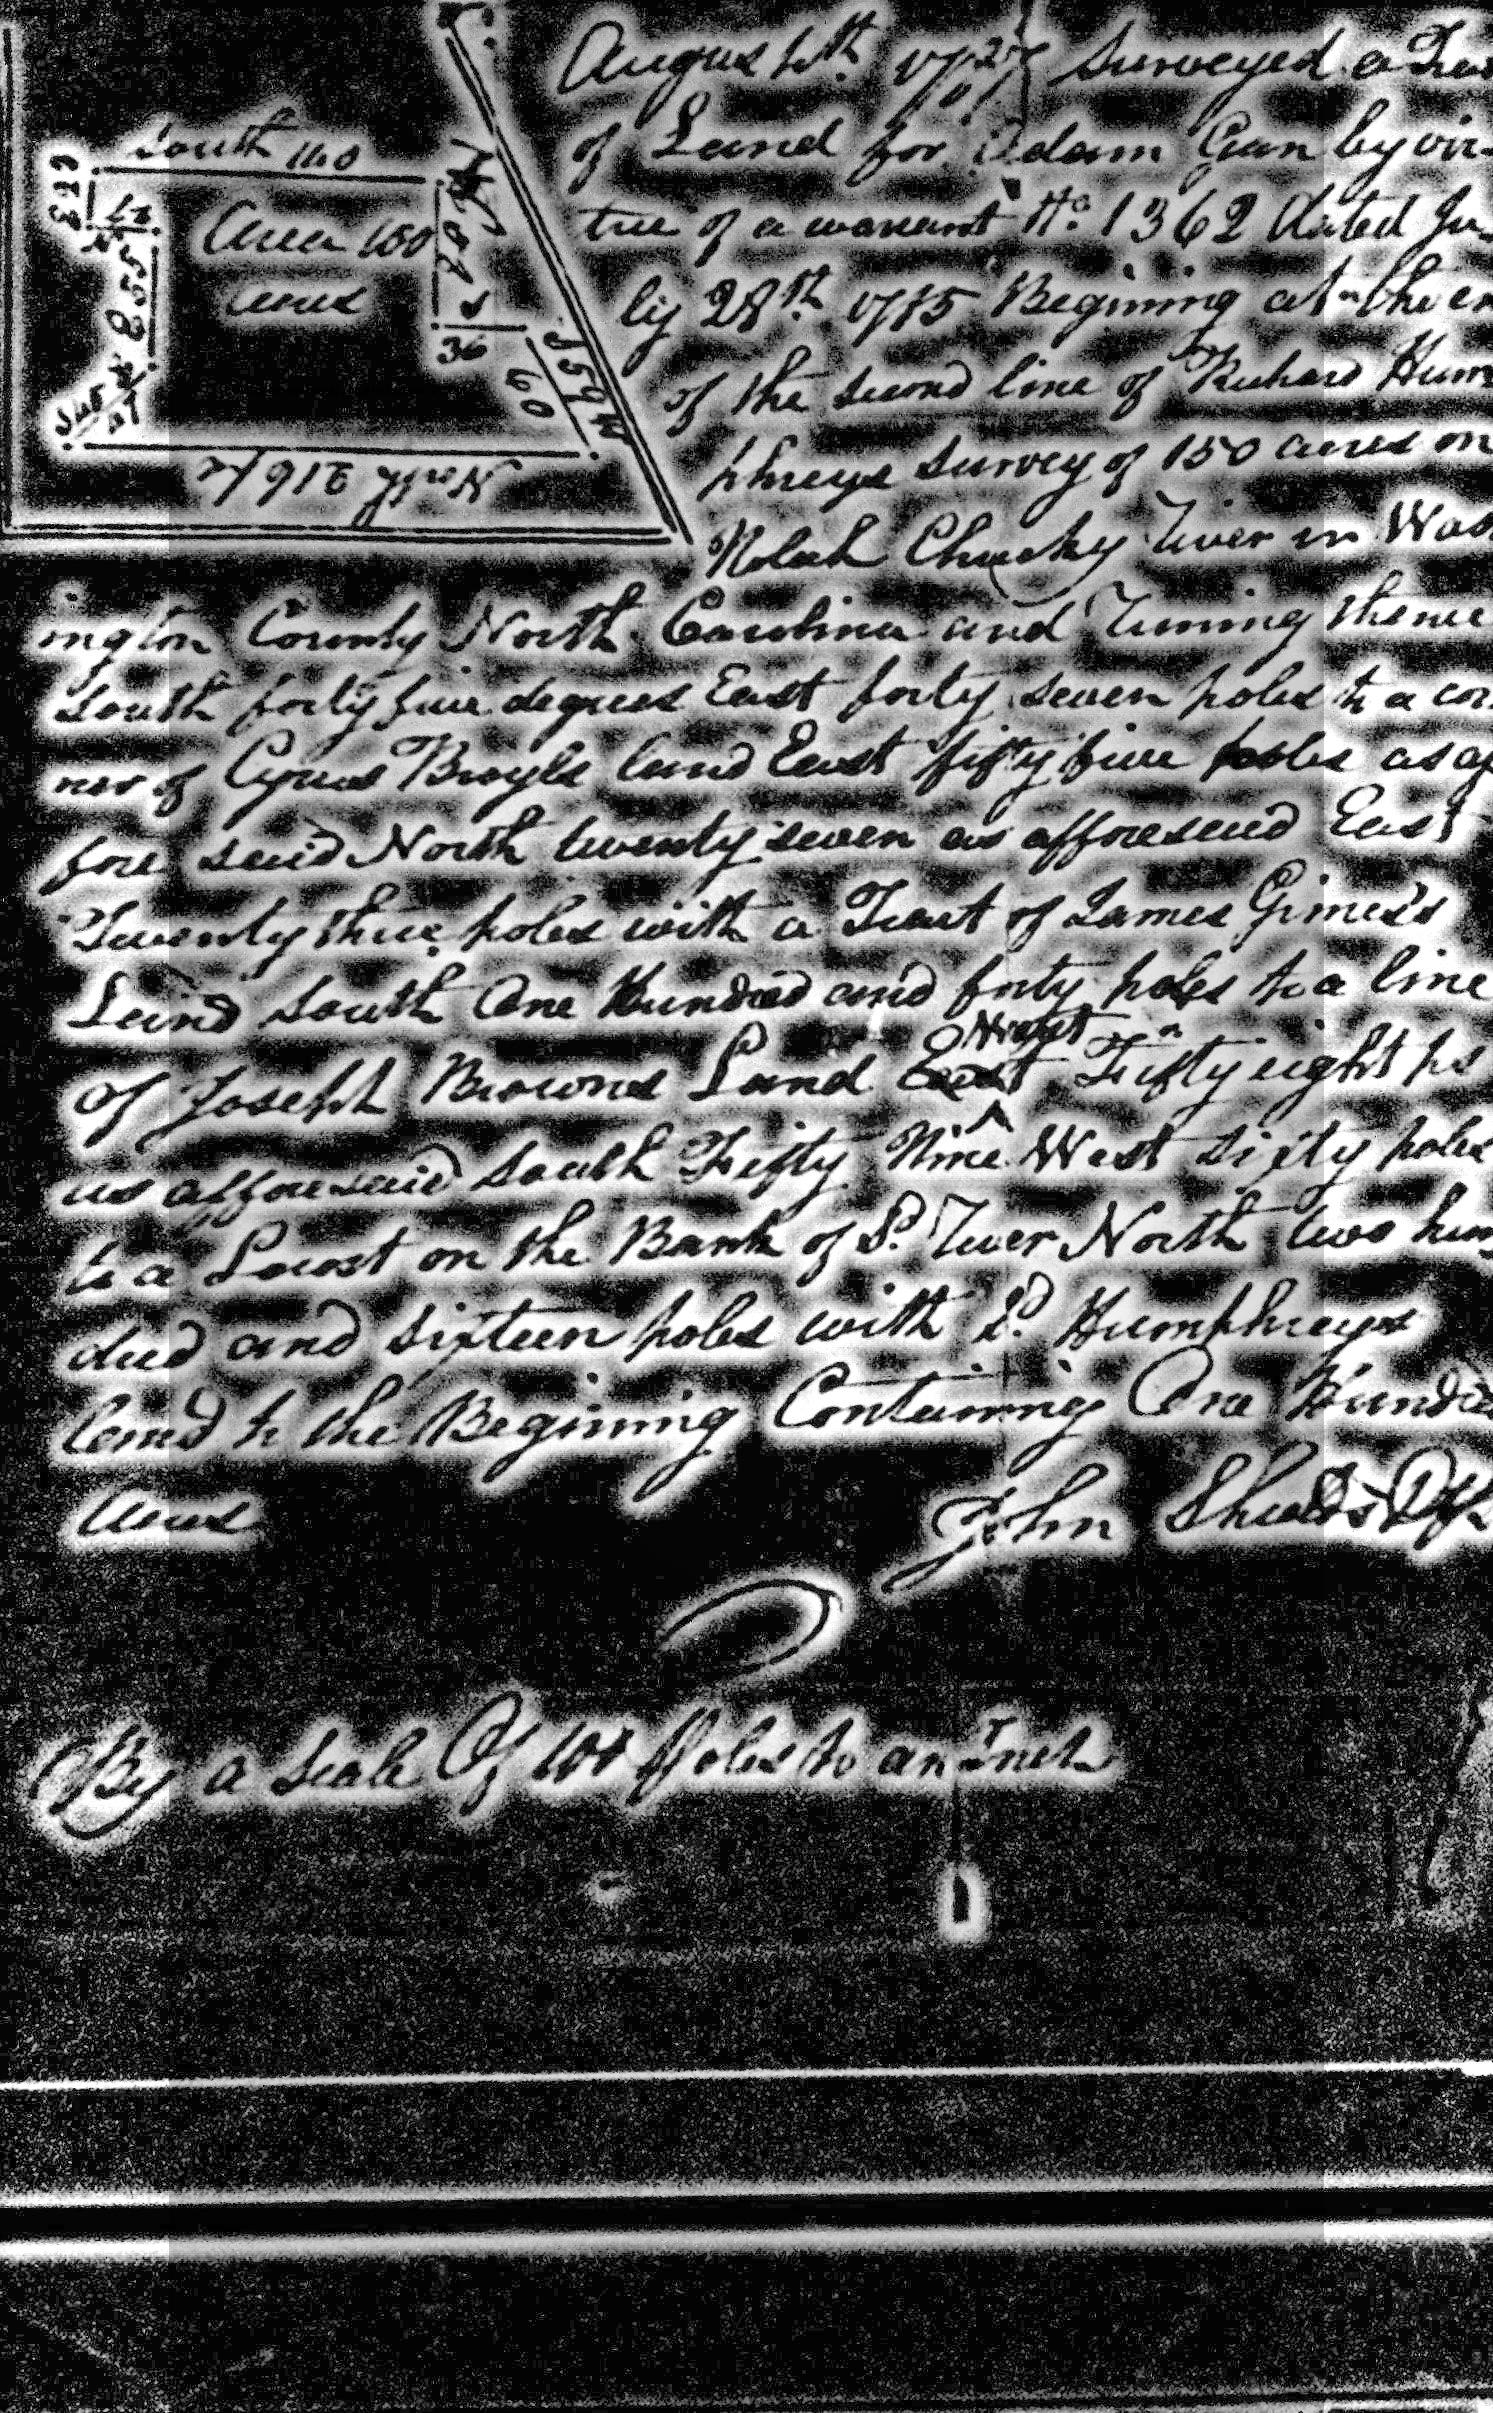 South 140
E 23
N 27
Area 100
acres
E 55
S 45 E 47
W 58
S
36
60
S 59 W
North 216 po
August 4th 1787 Surveyed a Trac
of Land for Adam Gan by vir-
tue of a warrant No. 1362 dated Ju
ly 28th 1785 Begining at the en
of the second line of Richard Hum
phreys survey of 150 acres on
Nolah Chucky River in Was
ington County North Carolina and Runing thence
South forty five degrees East forty seven poles to a cor
ner of Cyrus Broyls land East fifty five poles as af
fore said North twenty seven as afforesaid East
Twenty three poles with a Tract of James Gimes's
Land South One Hundred and forty poles to a line
of Joseph Browns Land West Fifty eight ps
as afforesaid South Fifty Nine West sixty poles
to a Locust on the Bank of Sd. River North two hun
dred and sixteen poles with Sd. Humphreys
land to the Begining Containing One Hundred
Acres
John Shields
By a Scale Of 100 Poles to an Inch